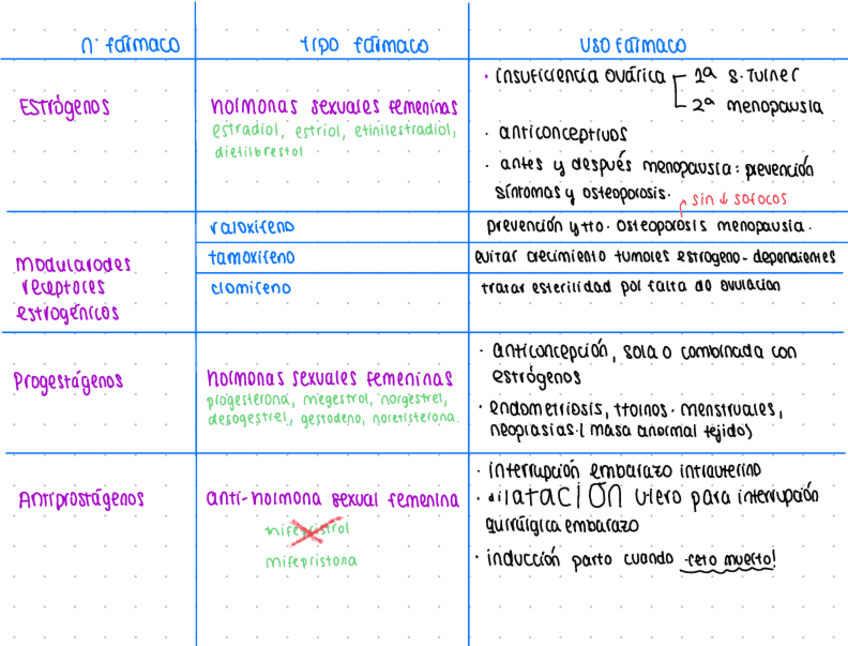 n· fármaco
tipo fármaco
uso fármaco
Estrógenos
hormonas sexuales femeninas
estradiol, estriol, etinilestradiol,
dietilbrestol
· insuficiencia ovárica 1ª s. Turner
2ª menopausia
· anticonceptivos
· antes y después menopausia: prevención
síntomas y osteoporosis.
sin ↓ sofocos
Modularodes
receptores
estrogénicos
raloxifeno
prevención y tto. osteoporosis menopausia.
tamoxifeno
evitar crecimiento tumores estrogeno-dependientes
clomifeno
tratar esterilidad por falta de ovulación
Progestágenos
hormonas sexuales femeninas
progesterona, megestrol, norgestrel,
desogestrel, gestodeno, noretisterona.
· anticoncepción, sola o combinada con
estrógenos
· endometriosis, ttornos. menstruales,
neoplasias. (masa anormal tejido)
Antiprostágenos
anti-hormona sexual femenina
mifepristrol
mifepristona
· interrupción embarazo intrauterino
· dilatación utero para interrupción
quirúrgica embarazo
· inducción parto cuando feto muerto!